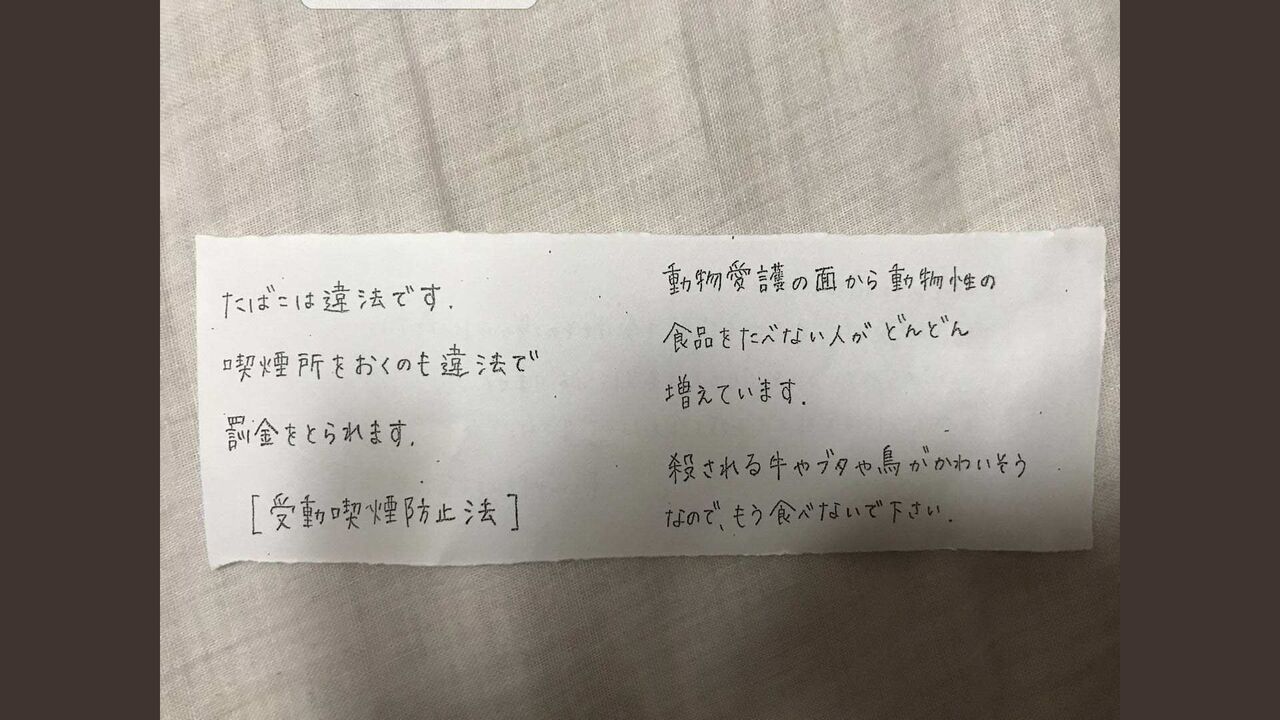 たばこは違法です.
喫煙所をおくのも違法で
罰金をとられます.
[受動喫煙防止法]
動物愛護の面から動物性の
食品をたべない人がどんどん
増えています.
殺される牛やブタや鳥がかわいそう
なので、もう食べないで下さい.